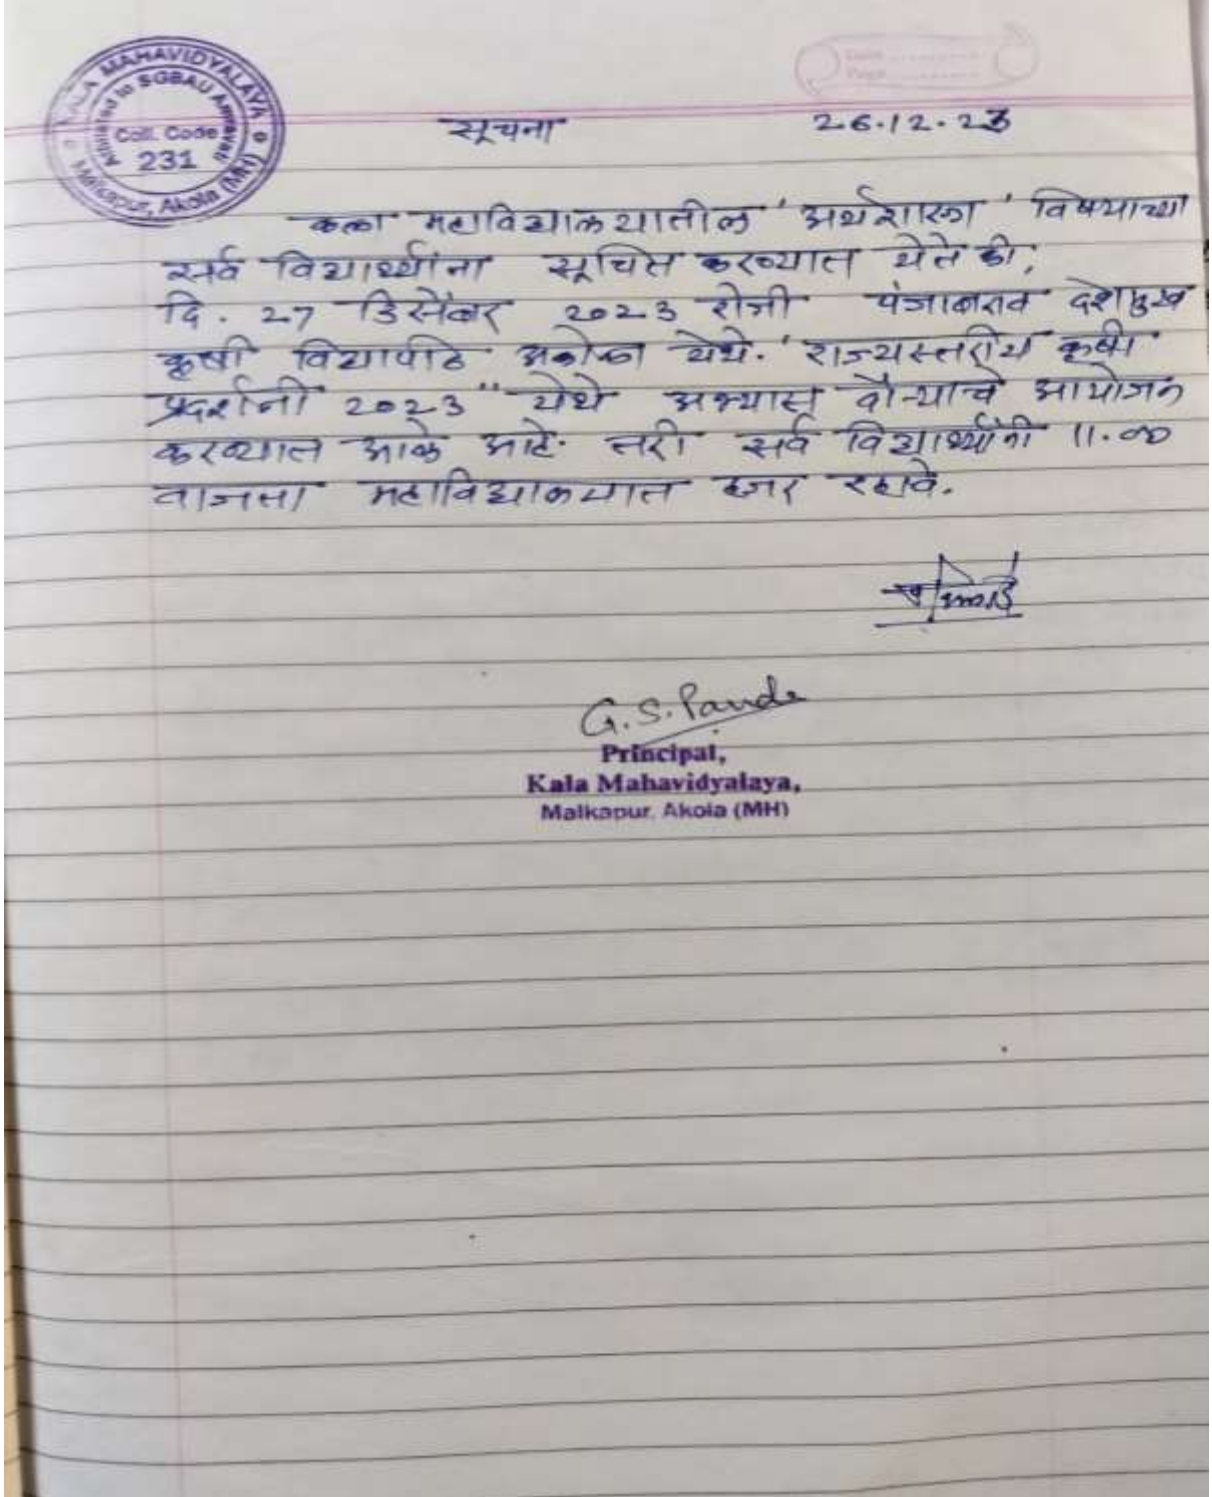 KALA MAHAVIDYALAYA
Affiliated to SGBAU Amravati
Coll. Code
231
Malkapur, Akola (MH)
Date
Page
सूचना 26.12.23
कला महाविद्यालयातील 'अर्थशास्त्र' विषयाच्या
सर्व विद्यार्थ्यांना सूचित करण्यात येते की,
दि. 27 डिसेंबर 2023 रोजी पंजाबराव देशमुख
कृषी विद्यापीठ अकोला येथे. 'राज्यस्तरीय कृषी
प्रदर्शनी 2023" येथे अभ्यास दौऱ्याचे आयोजन
करण्यात आले आहे. तरी सर्व विद्यार्थ्यांनी 11.00
वाजता महाविद्यालयात हजर रहावे.
G. S. Pande
Principal,
Kala Mahavidyalaya,
Malkapur, Akola (MH)